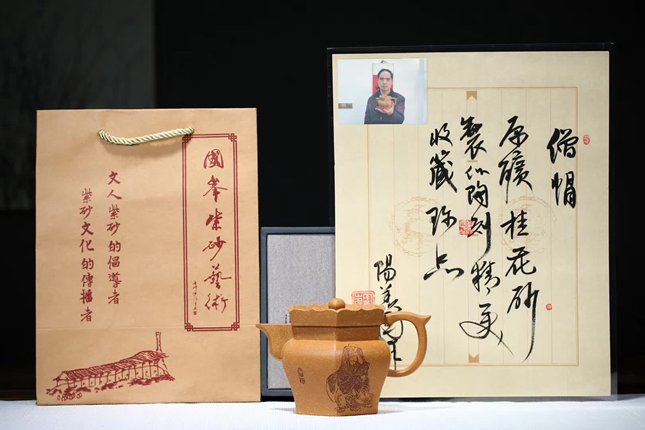 國峯紫砂藝術
文人紫砂的倡導者
紫砂文化的傳播者
僧帽
原礦桂花砂
製仙陶刻精美
收藏珍品
陽羡